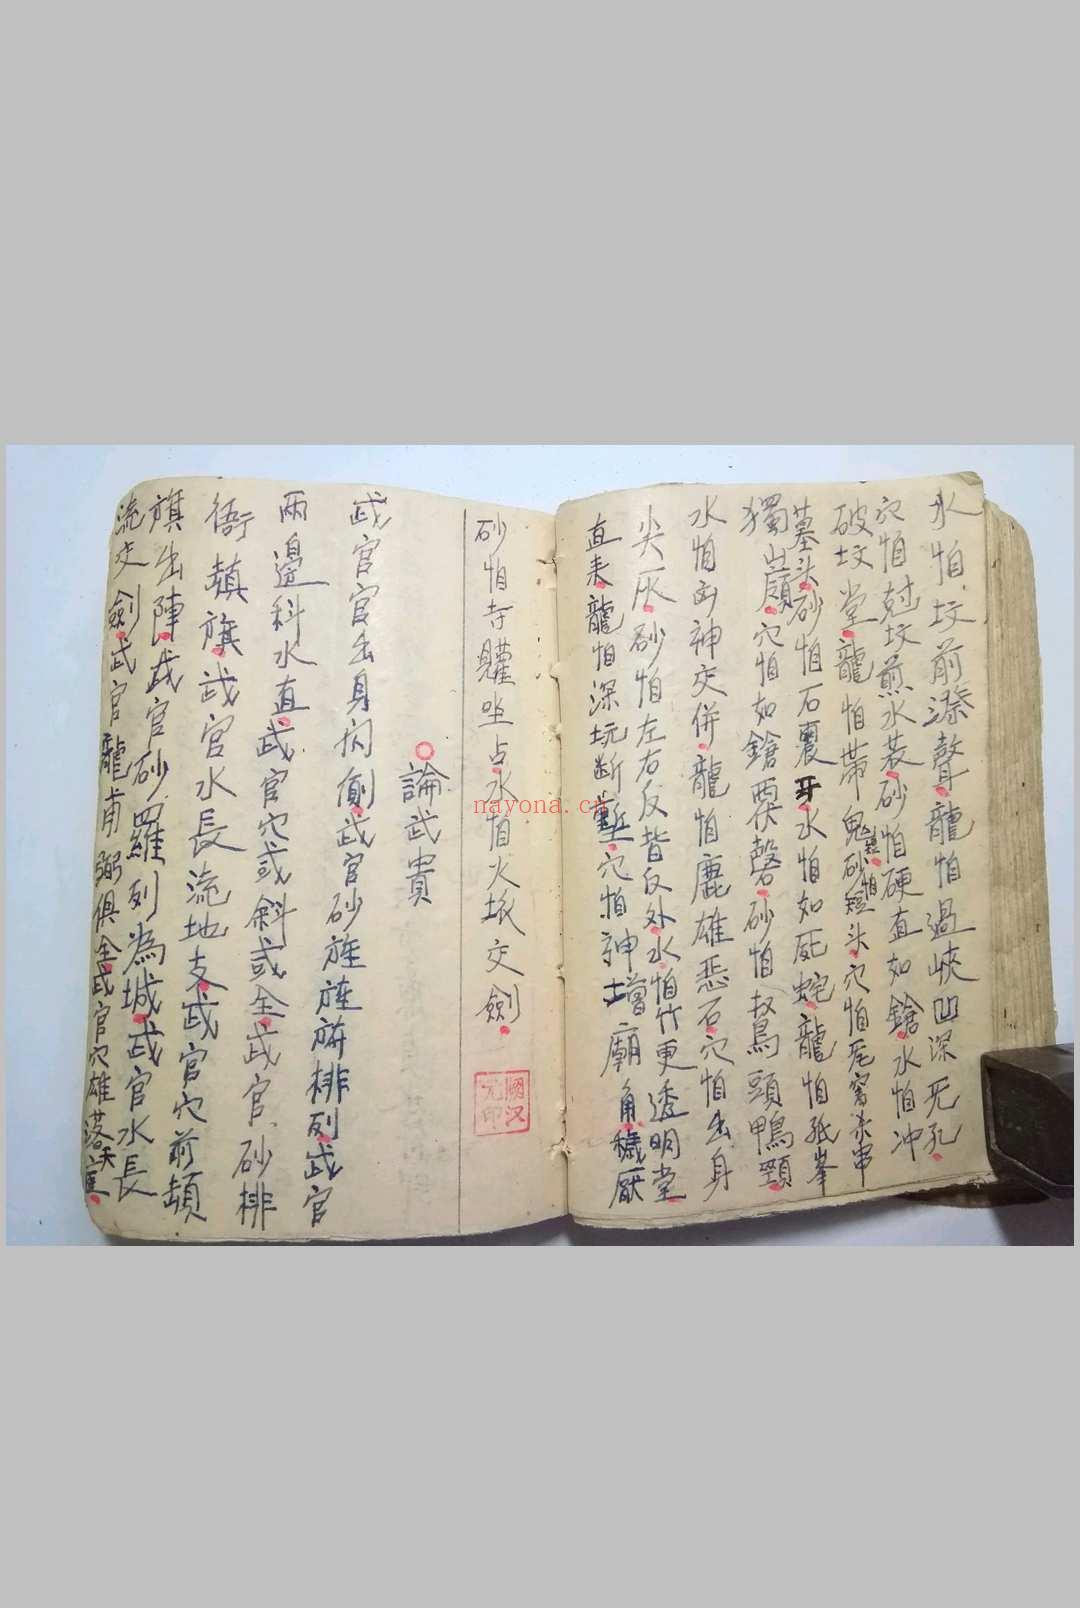 水怕坟前滲聲龍怕過峽凹深死孔
穴怕挖坟煎水裁砂怕硬直如鎗水怕冲
破坟堂龍怕帶鬼砂短怕頭穴怕死窩
墓头砂怕石裏牙水怕如死蛇龍怕孤峯
獨山嶺穴怕如鎗覆磬砂怕鵞頭鴨頸
水怕凶神交併龍怕鹿雄惡石穴怕出身
尖灰砂怕左右反背反外水怕竹更透明堂
直来龍怕深坑断塹穴怕神壇廟角穢厭
砂怕寺坐占水怕火城交劍
論武貴
武官官出身側武官砂旌旌排列武官
兩邊科水直武官穴或斜或全武官砂排
衙旗武官水長流地支武官穴前
旗出陣武官砂羅列為城武官水長
流交劍武官龍甫弼俱全武官穴雄落
國汉
元印
nayona.cn